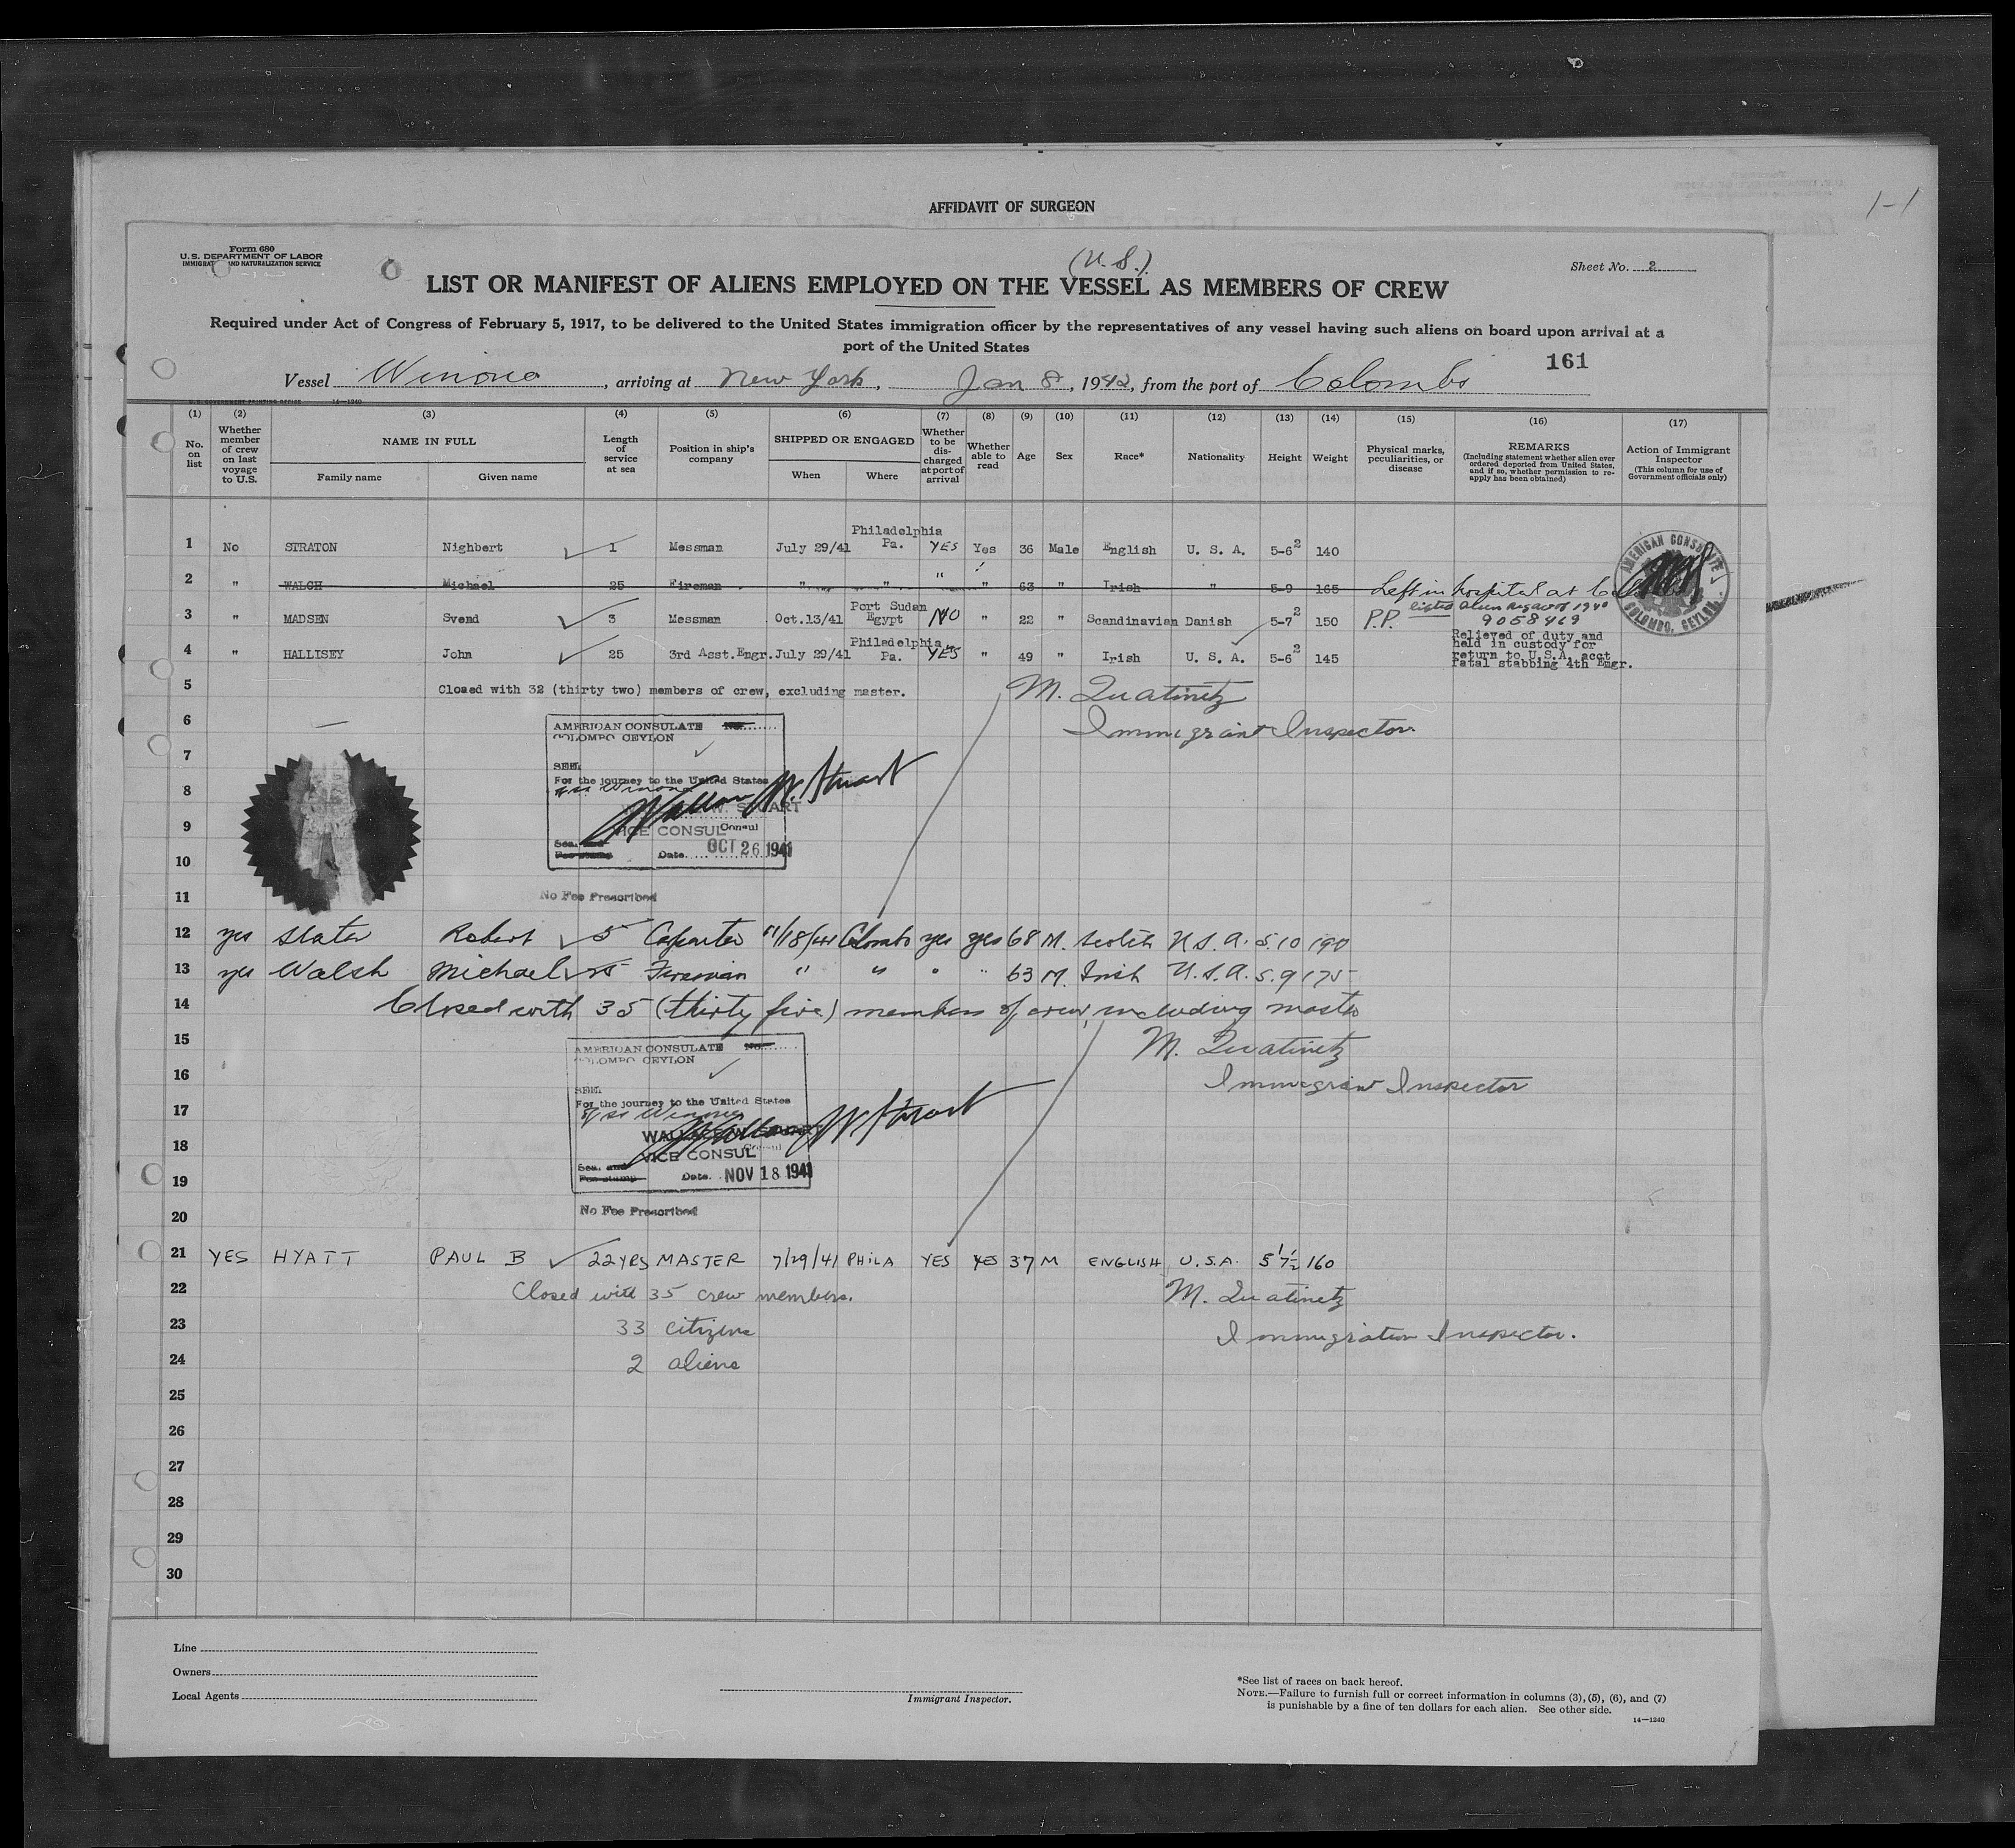 1-1
AFFIDAVIT OF SURGEON
Form 680
U.S. DEPARTMENT OF LABOR
IMMIGRATION AND NATURALIZATION SERVICE
(U.S.)
Sheet No. 2
LIST OR MANIFEST OF ALIENS EMPLOYED ON THE VESSEL AS MEMBERS OF CREW
Required under Act of Congress of February 5, 1917, to be delivered to the United States immigration officer by the representatives of any vessel having such aliens on board upon arrival at a
port of the United States
161
Vessel Winona, arriving at New York, Jan 8, 1942, from the port of Colombo
U.S. GOVERNMENT PRINTING OFFICE 14—1240
(1) (2) (3) (4) (5) (6) (7) (8) (9) (10) (11) (12) (13) (14) (15) (16) (17)
No. on list
Whether member of crew on last voyage to U.S.
NAME IN FULL
Family name
Given name
Length of service at sea
Position in ship's company
SHIPPED OR ENGAGED
When
Where
Whether to be discharged at port of arrival
Whether able to read
Age
Sex
Race*
Nationality
Height
Weight
Physical marks, peculiarities, or disease
REMARKS
(Including statement whether alien ever ordered deported from United States, and if so, whether permission to reapply has been obtained)
Action of Immigrant Inspector
(This column for use of Government officials only)
1 No STRATON Nighbert 1 Messman July 29/41 Philadelphia Pa. YES Yes 36 Male English U. S. A. 5-6 2 140
2 " WALCH Michael 25 Fireman " " " " 63 " Irish " 5-9 165 Left in hospital at
3 " MADSEN Svend 3 Messman Oct.13/41 Port Sudan Egypt NO " 22 " Scandinavian Danish 5-7 2 150 P.P. listed Alien Reg act of 1940 9058469
4 " HALLISEY John 25 3rd Asst.Engr. July 29/41 Philadelphia Pa. YES " 49 " Irish U. S. A. 5-6 2 145 Relieved of duty and held in custody for return to U.S.A. acct fatal stabbing 4th Engr.
AMERICAN CONSULATE
COLOMBO, CEYLON.
5 Closed with 32 (thirty two) members of crew, excluding master. M. Quatinetz
6 Immigrant Inspector
AMERICAN CONSULATE No.
COLOMBO CEYLON
7
SEEN
For the journey to the United States
8
S.S. Winona
Wallace W. Stuart
W. STUART
9
VICE CONSUL Consul
Seal and
Fee stamp Date OCT 26 1941
10
11 No Fee Prescribed
12 yes Slater Robert 5 Carpenter 11/18/41 Colombo yes yes 68 M. Scotch U.S.A. 5.10 190
13 yes Walsh Michael 25 Fireman " " " " 63 M. Irish U.S.A. 5.9 175
14 Closed with 35 (thirty five) members of crew, including master
15 M. Quatinetz
AMERICAN CONSULATE No.
COLOMBO CEYLON
16 Immigrant Inspector
SEEN
For the journey to the United States
17
of SS Winona
Wallace W Stuart
WALLACE W. STUART
18
VICE CONSUL Consul
Seal and
Fee stamp Date NOV 18 1941
19
20 No Fee Prescribed
21 YES HYATT PAUL B 22 YRS MASTER 7/29/41 PHILA YES YES 37 M ENGLISH U.S.A. 5' 7½ 160
22 Closed with 35 crew members. M. Quatinetz
23 33 citizens Immigration Inspector.
24 2 aliens
25
26
27
28
29
30
Line
Owners
Local Agents
Immigrant Inspector.
*See list of races on back hereof.
NOTE.—Failure to furnish full or correct information in columns (3), (5), (6), and (7)
is punishable by a fine of ten dollars for each alien. See other side.
14—1240